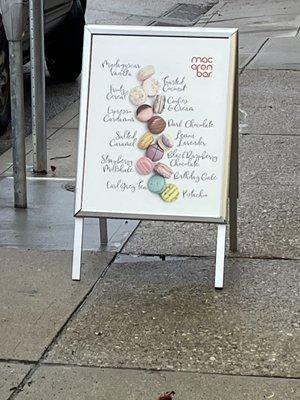 mac
aron
bar.
Madagascar
Vanilla
Toasted
Coconut
Fruity
Cereal
Cookies
& Cream
Espresso
Cardamom
Dark Chocolate
Salted
Caramel
Lemon
Lavender
Strawberry
Milkshake
Black Raspberry
Chocolate
Birthday Cake
Earl Grey Tea
Pistachio